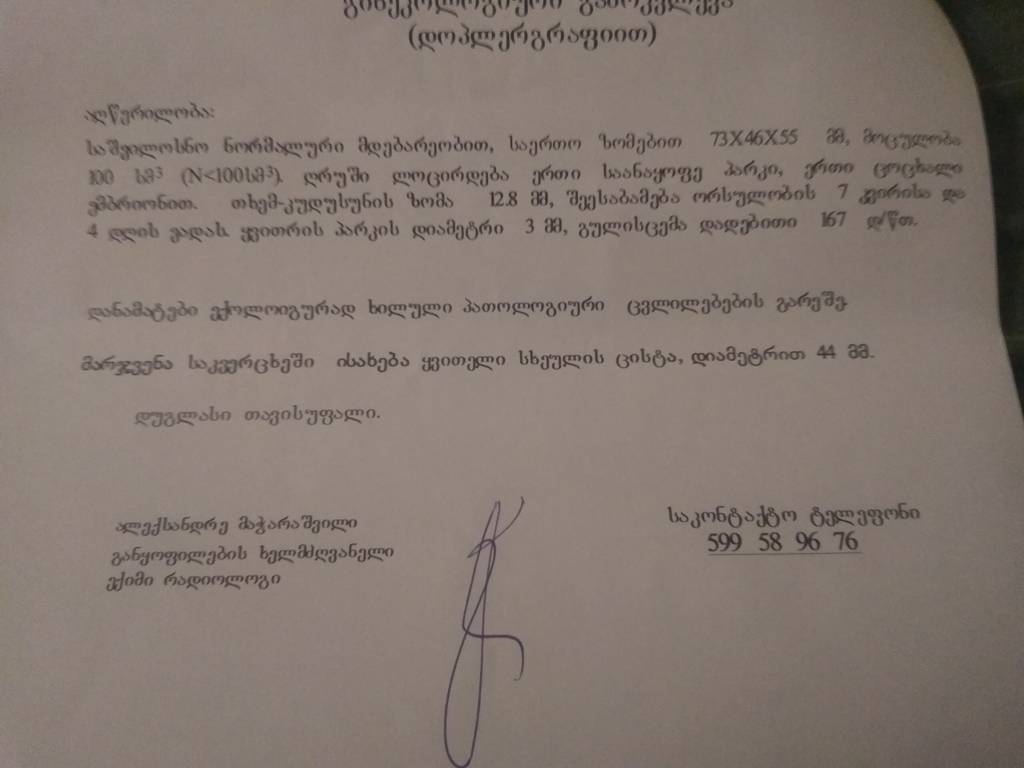 გინეკოლოგიური გამოკვლევა
(დოპლერგრაფიით)
აღწერილობა:
საშვილოსნო ნორმალური მდებარეობით, საერთო ზომებით 73X46X55 მმ, მოცულობა
100 სმ³ (N<100სმ³). ღრუში ლოცირდება ერთი საანაყოფე პარკი, ერთი ცოცხალი
ემბრიონით. თხემ-კუდუსუნის ზომა 12.8 მმ, შეესაბამება ორსულობის 7 კვირისა და
4 დღის ვადას. ყვითრის პარკის დიამეტრი 3 მმ, გულისცემა დადებითი 167 დ/წთ.
დანამატები ექოლოიგურად ხილული პათოლოგიური ცვლილებების გარეშე.
მარჯვენა საკვერცხეში ისახება ყვითელი სხეულის ცისტა, დიამეტრით 44 მმ.
დუგლასი თავისუფალი.
ალექსანდრე მაჭარაშვილი
განყოფილების ხელმძღვანელი
ექიმი რადიოლოგი
საკონტაქტო ტელეფონი
599 58 96 76